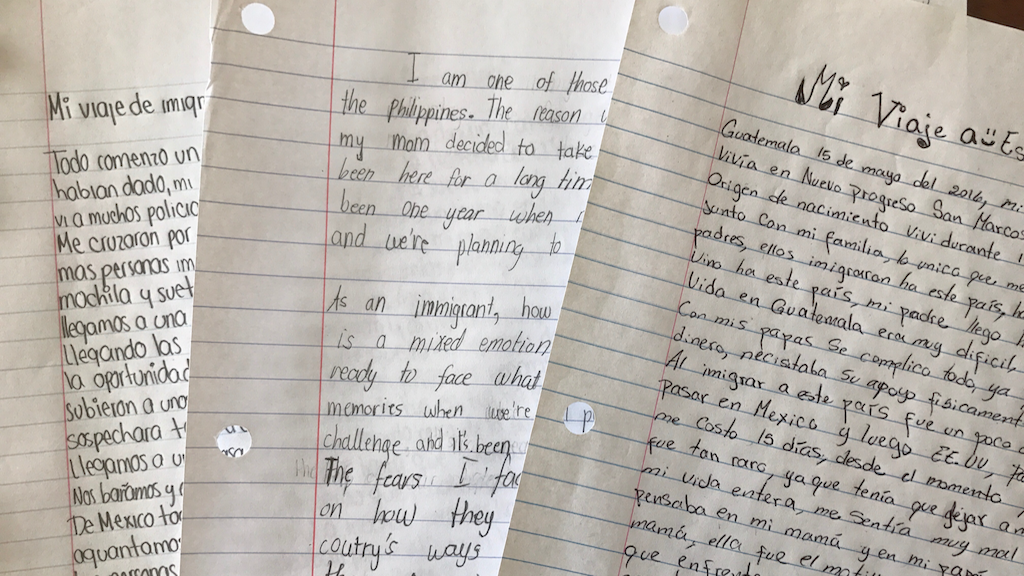 Mi viaje de imigr
Todo comenzo un
habian dado, mi
vi a muchos policia
Me cruzaron por
mas personas im
mochila y suet
llegamos a una
Llegando las
la oportunidad
subieron a uno
sospechara t
Llegamos a u
Nos bañamos y c
De Mexico to
aguantamo
personas
I am one of those
the Philippines. The reason
my mom decided to take
been here for a long tim
been one year when
and we're planning to
As an immigrant, how
is a mixed emotion
ready to face what
memories when we're
challenge and it's been
The fears I fac
on how they
coutry's ways
Mi Viaje a Es
Guatemala 15 de mayo del 2016, mi
vivía en Nuevo progreso San Marcos
Origen de nacimiento viví durante
junto con mi familia, lo unico que me
padres, ellos imigraron ha este país, h
vino ha este país, mi padre llego h
Vida en Guatemala era muy dificil,
Con mis papas se complico todo ya
dinero, necistaba su apoyo fisicament
Al imigrar a este país fue un poco d
pasar en Mexico y luego EE.UU, pa
me costo 15 días, desde el momento
fue tan raro, ya que tenía que dejar a m
mi vida entera, me sentía muy mal
pensaba en mi mamá y en mi papá
mamá, ella fue el moti
que enfrent